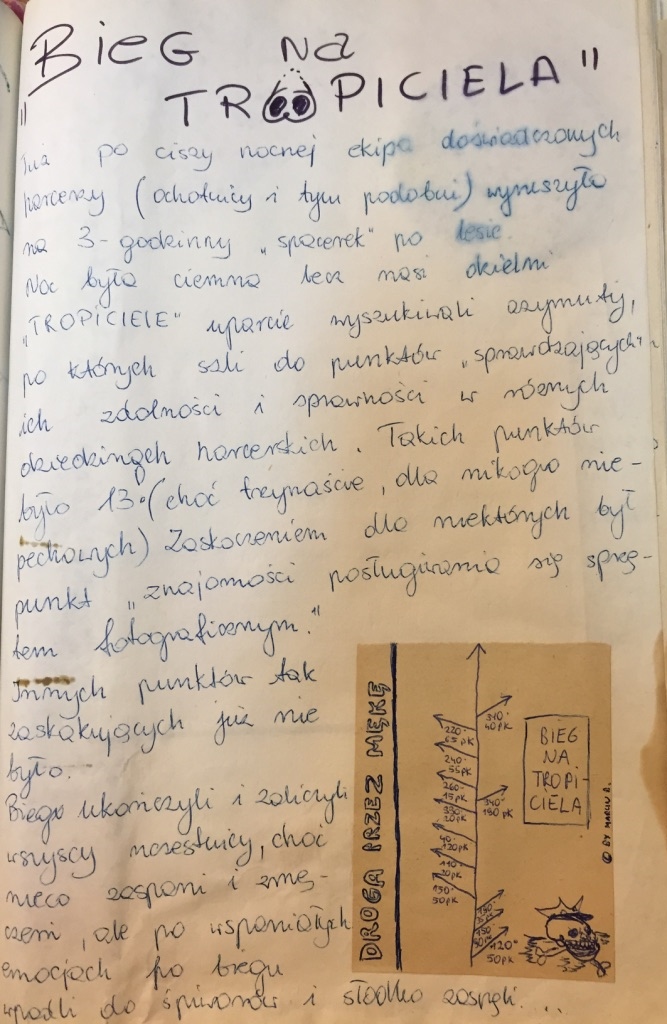 "Bieg na
TROPICIELA"
Tuż po ciszy nocnej ekipa doświadczonych
harcerzy (ochotnicy i tym podobni) wyruszyła
na 3-godzinny „spacerek" po lesie.
Noc była ciemna lecz nasi dzielni
„TROPICIELE" uparcie wyszukiwali azymuty,
po których szli do punktów „sprawdzających"
ich zdolności i sprawności w różnych
dziedzinach harcerskich. Takich punktów
było 13. (choć trzynaście, dla nikogo nie-
pechowych) Zaskoczeniem dla niektórych był
punkt „znajomości posługiwania się sprzę-
tem fotograficznym."
Innych punktów tak
zaskakujących już nie
było.
Biego ukończyli i zaliczyli
wszyscy uczestnicy, choć
nieco zaspani i zmę-
czeni, ale po wspaniałych
emocjach po biegu
wpadli do śpiworów i słodko zasnęli....
DROGA PRZEZ MĘKĘ
220°
65pk
240°
55pk
260°
15pk
330°
20pk
40°
120pk
110°
70pk
150°
50pk
310°
40pk
340°
180pk
120°
50pk
BIEG
NA
TROPI-
CIELA